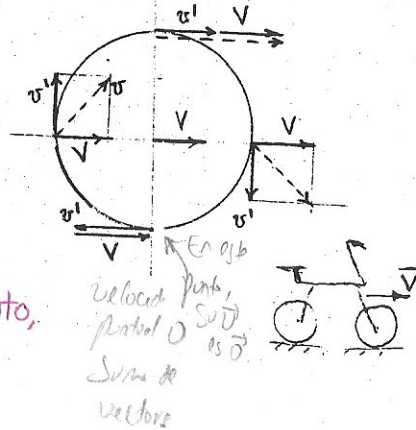 v' V
v' v
V
V
V
v'
v'
V
En este
punto,
su v⃗
es 0⃗
velocid
puntual 0
Suma de
vectores
nto,
V⃗